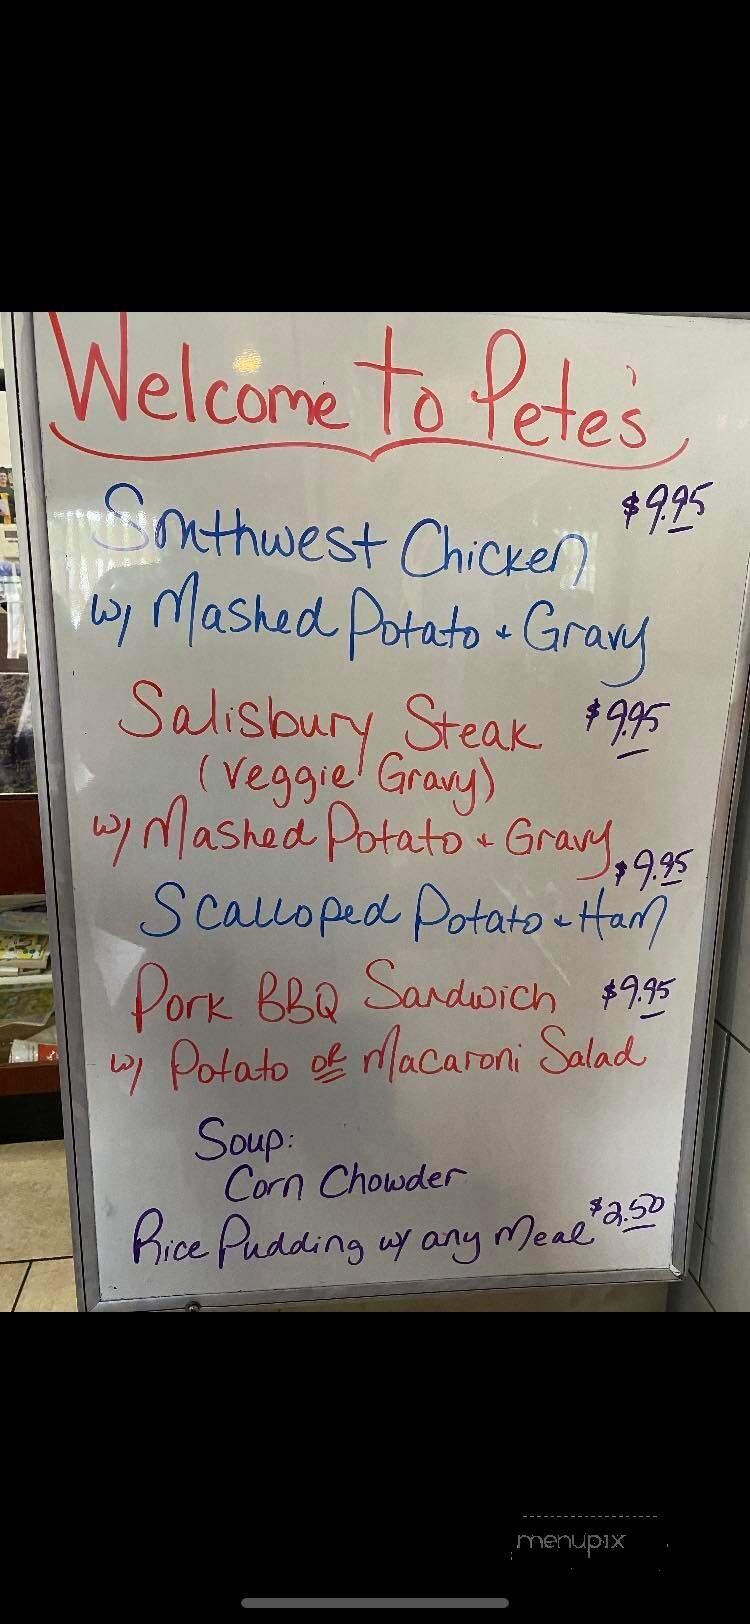 Welcome to Pete's
$9.95
Southwest Chicken
w/ Mashed Potato + Gravy
Salisbury Steak $9.95
(Veggie Gravy)
w/ Mashed Potato + Gravy
$9.95
Scalloped Potato + Ham
Pork BBQ Sandwich $9.95
w/ Potato or Macaroni Salad
Soup:
Corn Chowder
Rice Pudding w/ any Meal $2.50
menupix